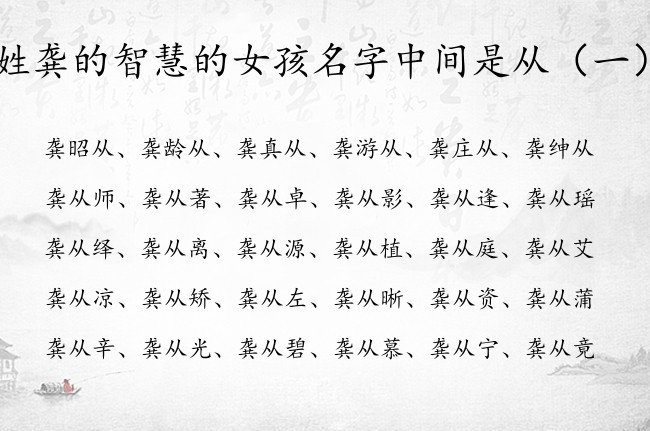 姓龚的智慧的女孩名字中间是从（一）
龚昭从、龚龄从、龚真从、龚游从、龚庄从、龚绅从
龚从师、龚从著、龚从卓、龚从影、龚从逢、龚从瑶
龚从绎、龚从离、龚从源、龚从植、龚从庭、龚从艾
龚从凉、龚从矫、龚从左、龚从晰、龚从资、龚从蒲
龚从辛、龚从光、龚从碧、龚从慕、龚从宁、龚从竟